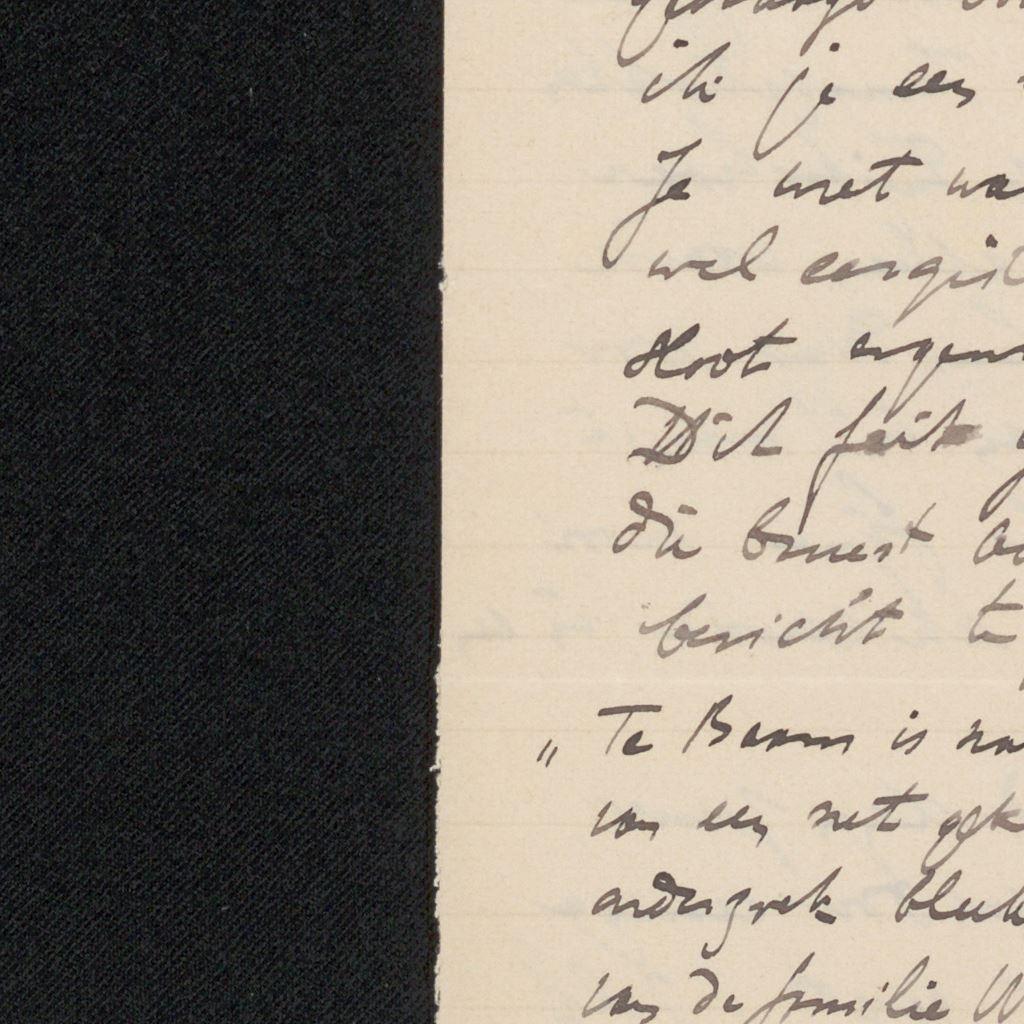 ik je een
Je weet wa
wel eergist
sloot ergens
Dit feit
die bruest
bericht te
„Te Baarn is na
van een net gek
onderzoek bleek
van de familie W